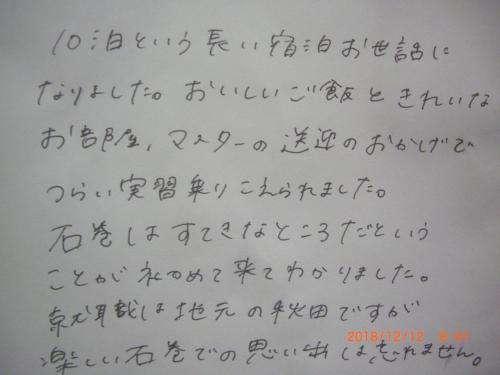 10泊という長い宿泊お世話に
なりました。おいしいご飯ときれいな
お部屋、マスターの送迎のおかげで
つらい実習乗りこえられました。
石巻はすてきなところだという
ことが初めて来てわかりました。
就職は地元の秋田ですが
楽しい石巻での思い出は忘れません。
2018/12/12